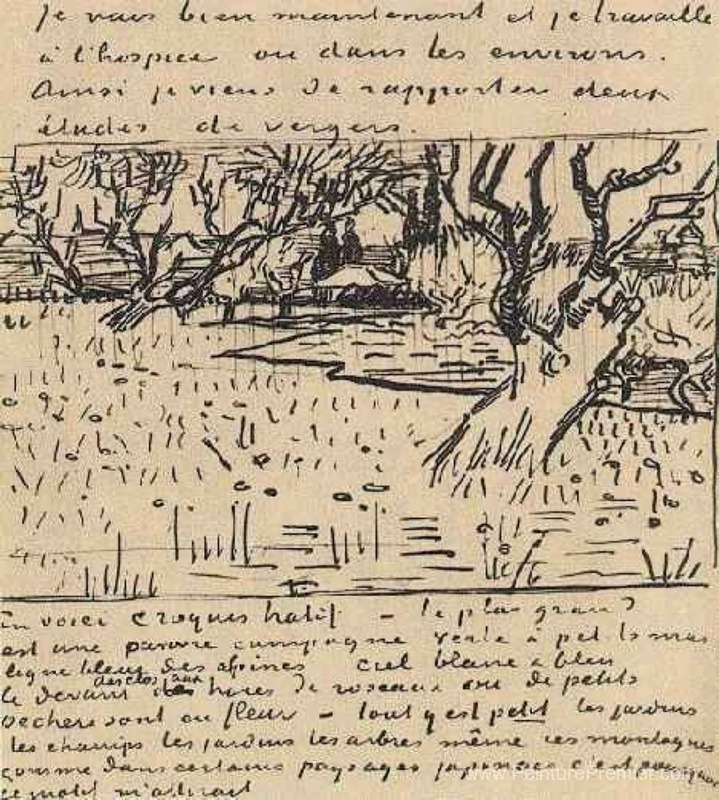 Je vais bien maintenant et je travaille
à l'hospice ou dans les environs.
Ainsi je viens de rapporter deux
études de vergers.
En voici croquis hatif - le plus grand
est une pauvre campagne verte à petits mas
ligne bleue des alpines ciel blanc & bleu
le devant des clos aux haies de roseaux ou de petits
pechers sont en fleur - tout y est petit les jardins
les champs les jardins les arbres même ces montagnes
comme dans certains paysages japonais c'est pourquoi
ce motif m'attirait
www.PeinturePremier.com